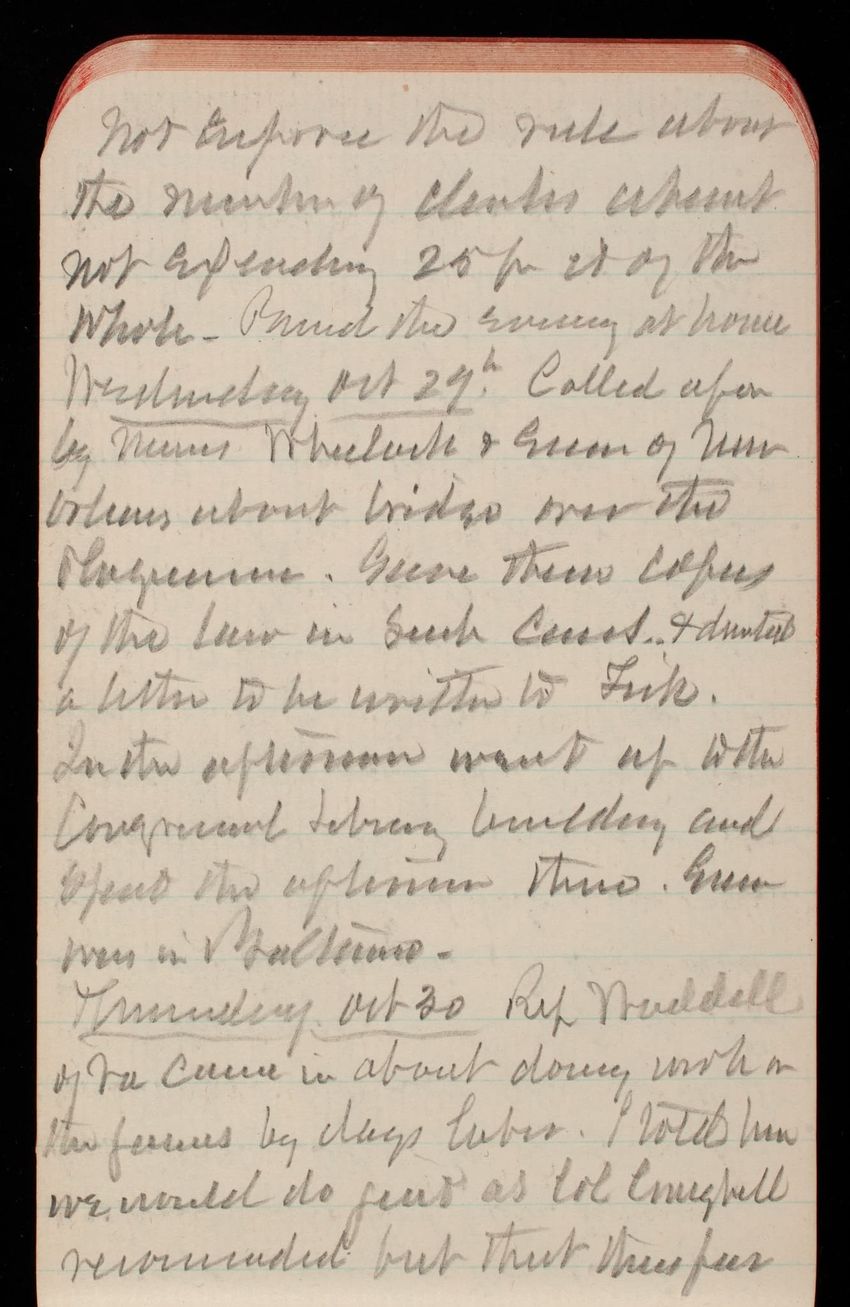 not enforce the rule about
the number of clerks absent
not exceeding 25 pr ct of the
whole - Passed the evening at home
Wednesday Oct 29th. Called upon
by Messrs Wheelock & Green of New
Orleans about bridge over the
Gave them copies
of the law in such cases. & directed
a letter to be written to Fisk.
In the afternoon went up to the
Congressnl Library building and
spent the afternoon there. Green
was in Baltimore -
Thursday Oct 30 Rep Waddill
of Va came in about doing work on
the by days labor. I told him
we would do just as Col Craighill
recommended but that thus far